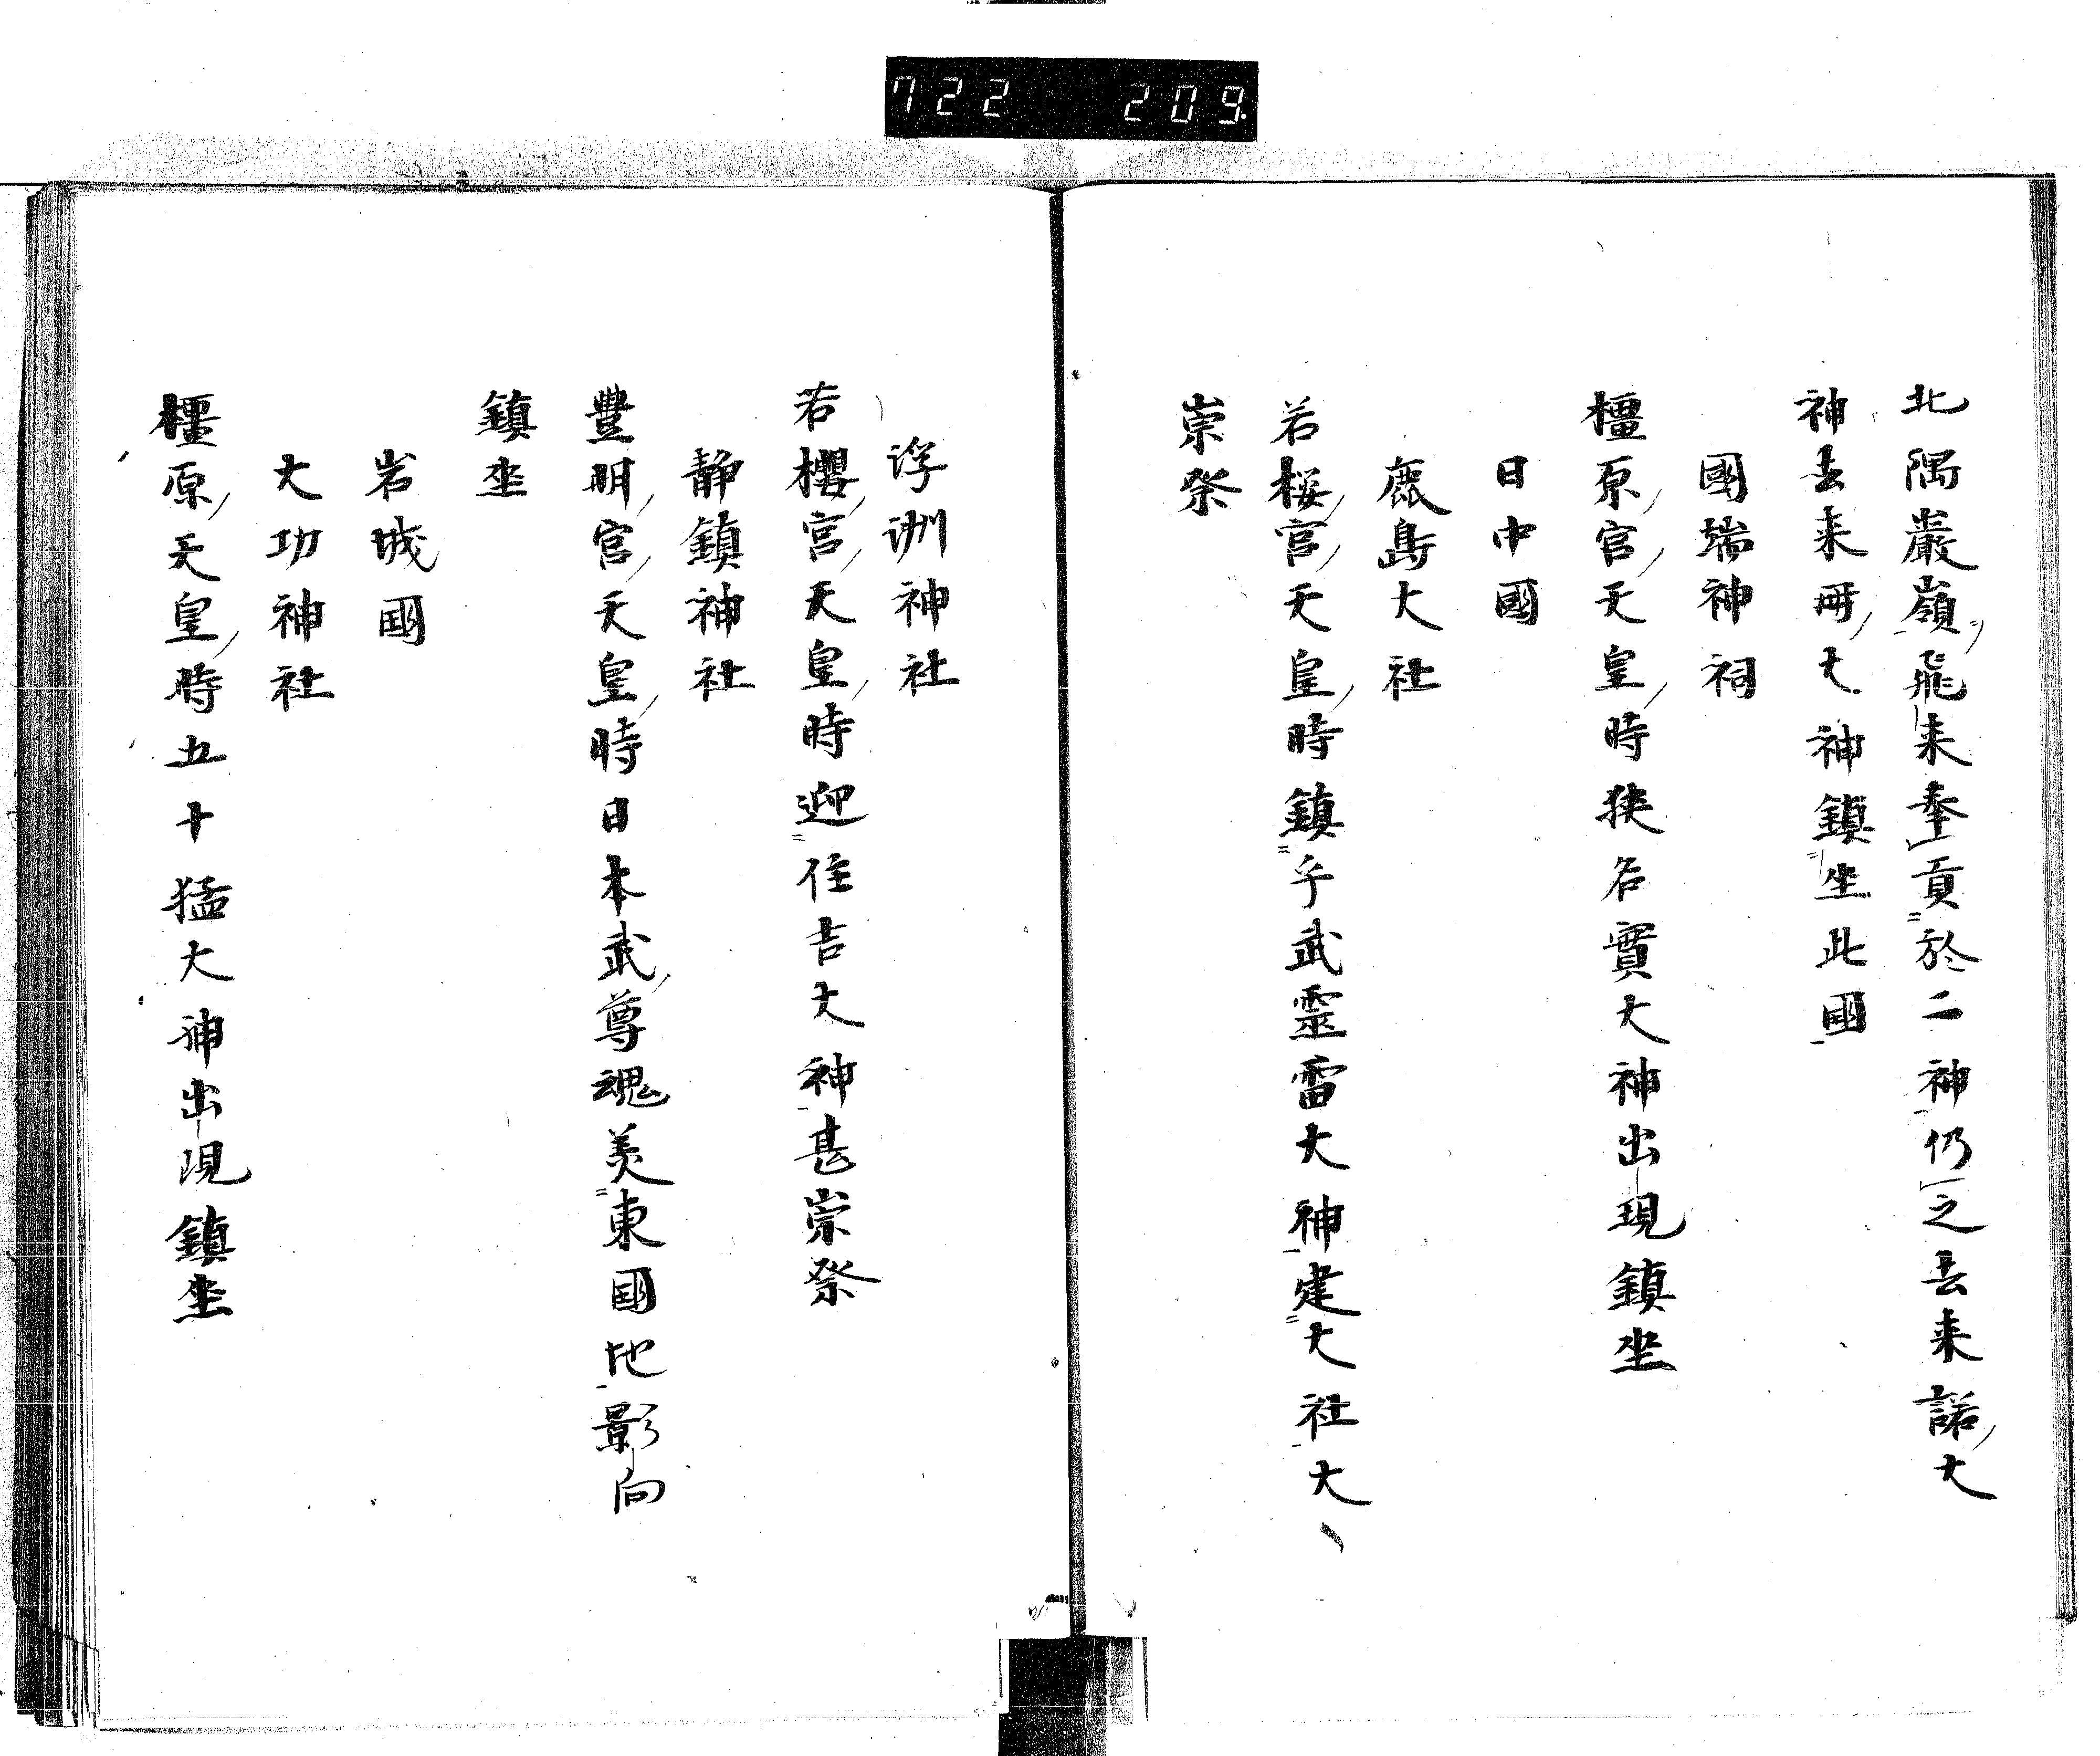 722 209
北隅巌嶺飛来奉貢於二神仍之去来諾大
神去来冊大神鎮坐此國
國端神祠
橿原宮天皇時狭名實大神出現鎮坐
日中國
鹿島大社
若桜宮天皇時鎮乎武靈雷大神建大社大
崇祭
浮洲神社
若櫻宮天皇時迎住吉大神甚崇祭
静鎮神社
豊明宮天皇時日本武尊魂美東國地影向
鎮坐
岩城國
大功神社
橿原天皇時五十猛大神出現鎮坐